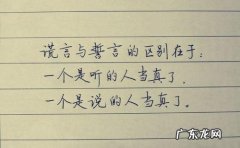 谎言与誓言的区别在于：
一个是听的人当真了，
一个是说的人当真了。
广东龙网